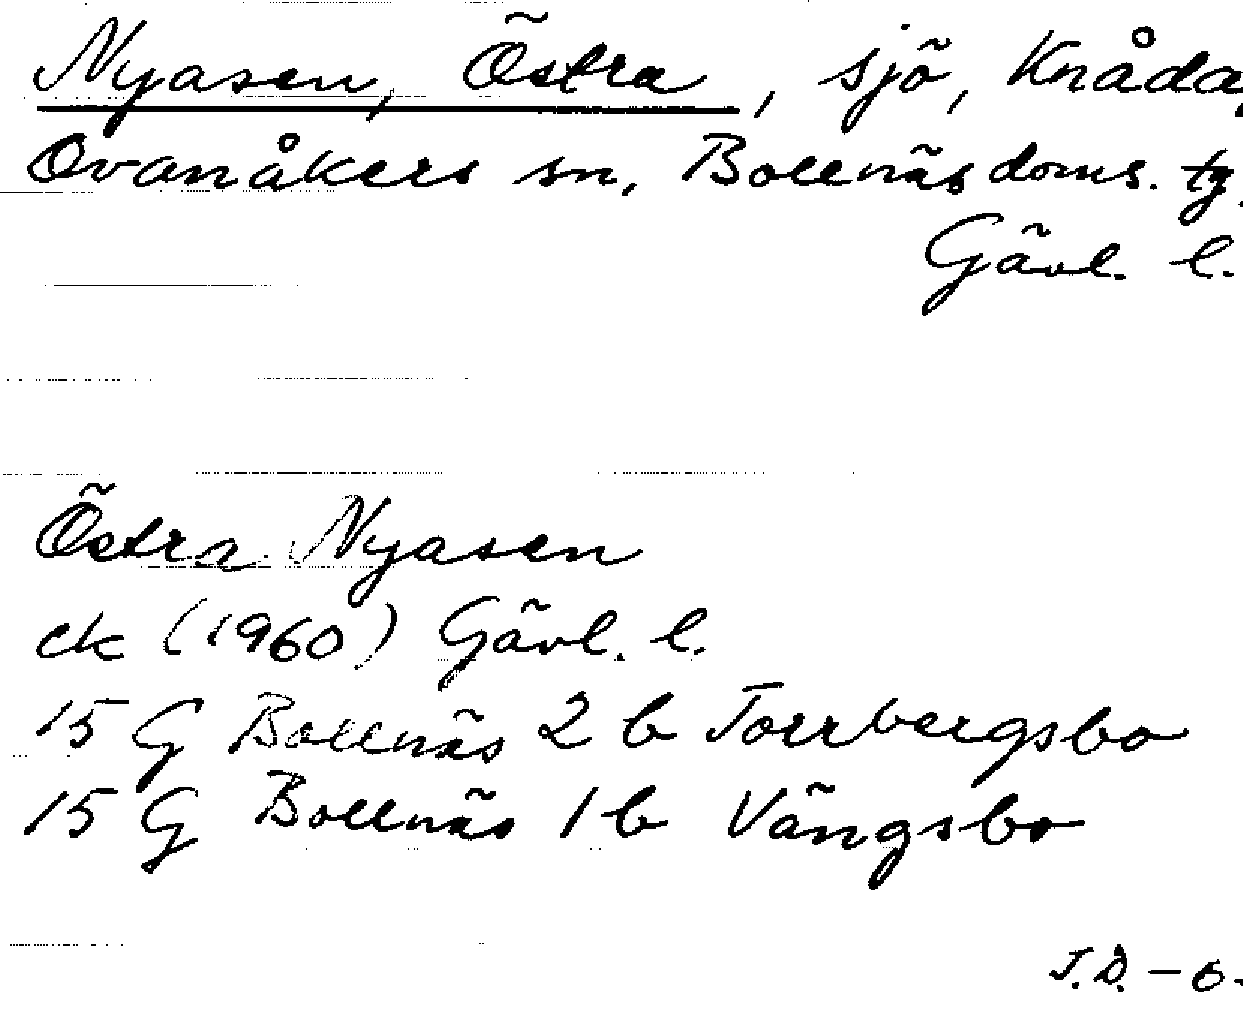 Nyasen, Östra, sjö, Knåda,
Ovanåkers sn, Bollnäs doms. tg.
Gävl. l.
Östra Nyasen
ek (1960) Gävl. l.
15 G Bollnäs 2 b Torrbergsbo
15 G Bollnäs 1 b Vängsbo
J.D. - 6.